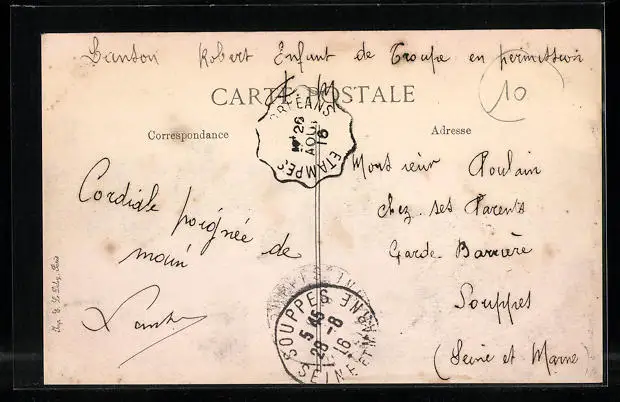 Robert Enfant de Troupe en permission
10
CARTE POSTALE
ORLEANS
26
AOUT
16
ETAMPES
Correspondance
Adresse
Cordiale poignée de
main
Monsieur Poulain
chez ses Parents
Garde-Barrière
Souppes
(Seine et Marne)
SOUPPES
5 45
28 -8
16
SEINE ET MARNE